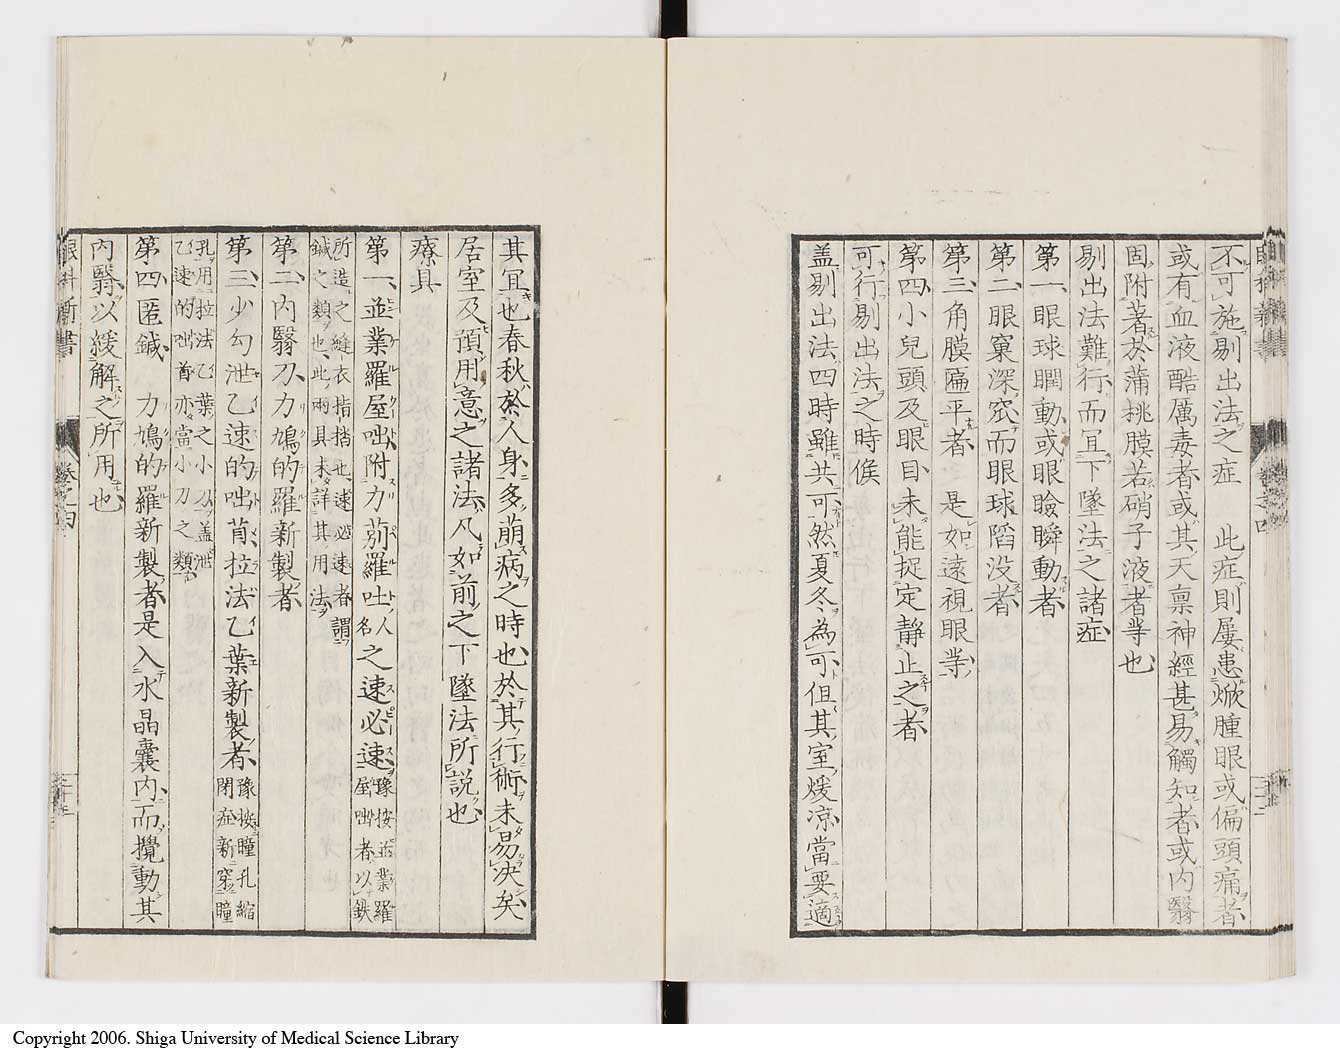 不可施剔出法之症　此症則屢患焮腫眼或偏頭痛者
或有血液酷厲毒者或其天禀神經甚易觸知者或内翳
固附著於蒲桃膜若硝子液者等也
剔出法難行而宜下墜法之諸症
第一眼球瞤動或眼瞼瞬動者
第二眼窠深窊而眼球陷没者
第三角膜匾平者　是如遠視眼等
第四小兒頭及眼目未能捉定靜止之者
可行剔出法之時候
盖剔出法四時雖共可然夏冬為可但其室煖凉當要適
其宜也春秋於人身多萠病之時也於其行術未易决矣
居室及預用意之諸法凡如前之下墜法所説也
療具
第一並業羅屋咄附力莂羅吐人名之速必速豫按並業羅屋咄者以鉄
所造之縫衣指揩也速必速者謂
鍼之類也此兩具未詳其用法
第二内翳刀力鳩的羅新製者
第三少勾泄乙速的咄莦拉法乙葉新製者豫按瞳孔縮閉症新穿瞳
孔用拉法乙葉之小刀盖泄
乙速的咄莦亦當小刀之類
第四匿鍼　力鳩的羅新製者是入水晶囊内而攪動其
内翳以緩解之所用也
眼科新書
卷之四
Copyright 2006. Shiga University of Medical Science Library